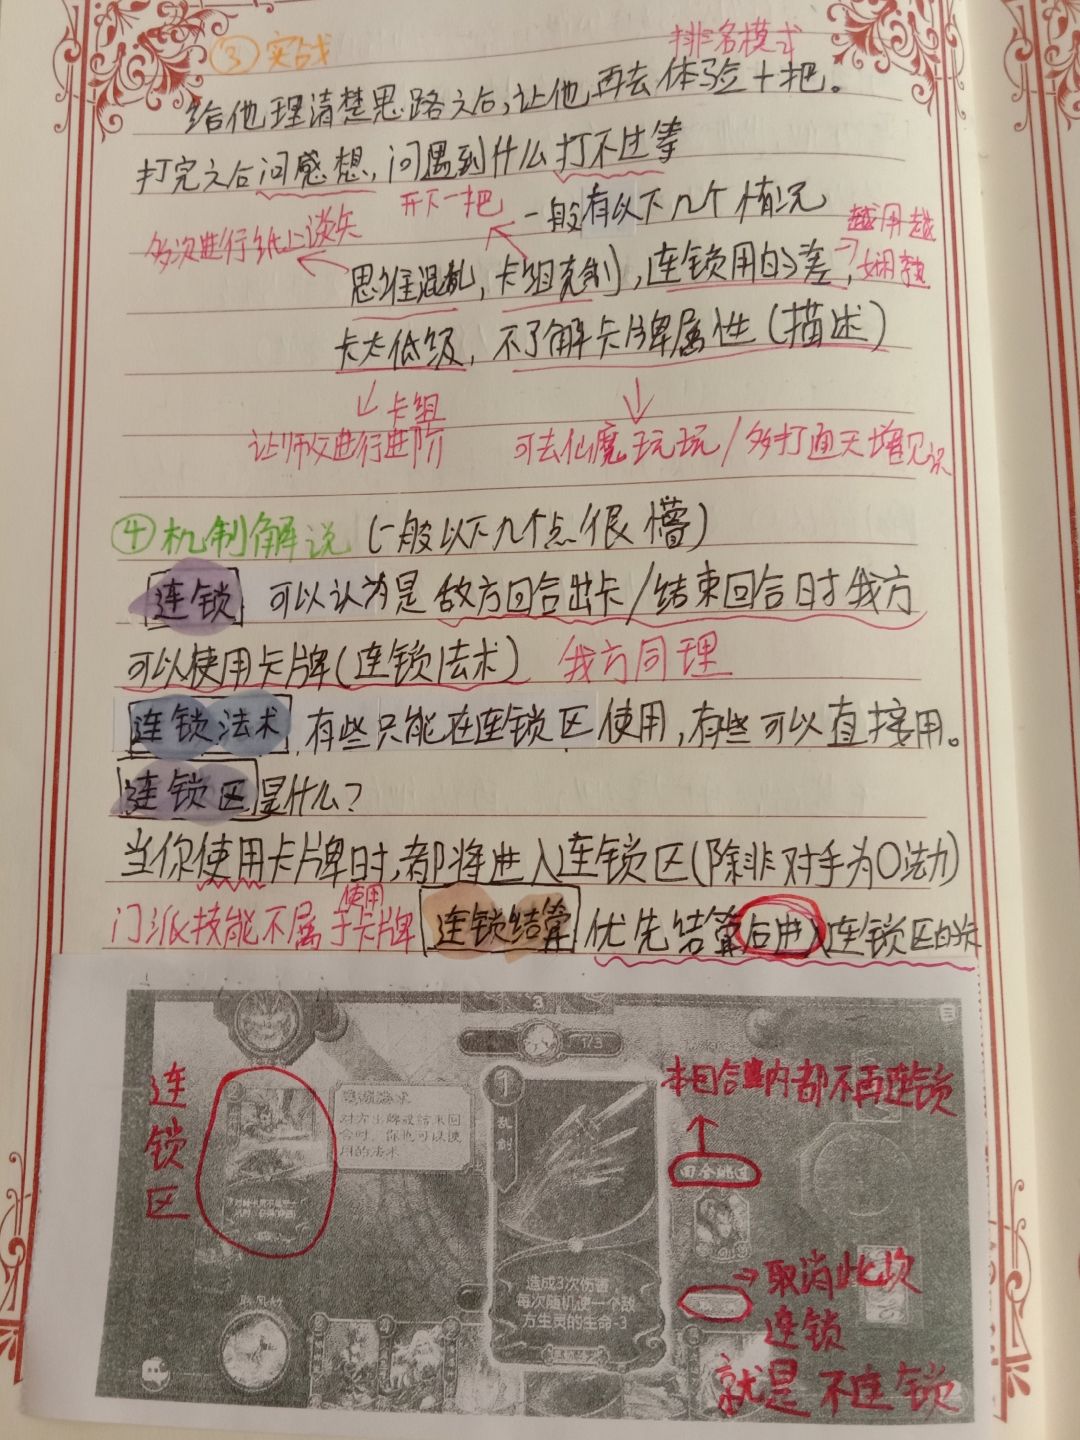 ③实战
排名模式
给他理清楚思路之后,让他再去体验十把。
打完之后问感想,问遇到什么打不过等
开下一把
一般有以下几个情况
多次进行纸上谈兵
越用越
娴熟
思维混乱,卡组克制,连锁用的差,
卡太低级,不了解卡牌属性(描述)
卡组
让师父进行进阶
可去仙魔玩玩/多打通天增见识
④机制解说(一般以下几个点很懵)
连锁 可以认为是敌方回合出卡/结束回合时我方
可以使用卡牌(连锁法术) 我方同理
连锁法术,有些只能在连锁区使用,有些可以直接用。
连锁区是什么?
当你使用卡牌时,都将进入连锁区(除非对手为0法力)
使用
门派技能不属于卡牌 连锁结算 优先结算后进入连锁区的卡
3
1/3
连锁区
对方出牌或结束回
合时,你也可以使
用的法术
1
乱剑
造成3次伤害
每次随机使一个敌
方生灵的生命-3
本回合内都不再连锁
回合跳过
取消此次
连锁
就是不连锁